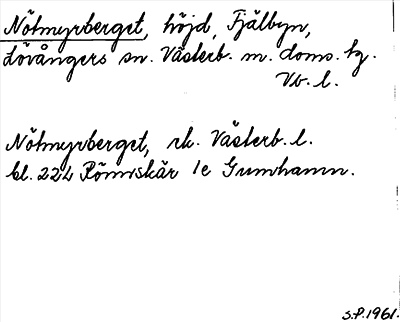 Nötmyrberget, höjd, Fjälbyn,
Lövångers sn. Västerb. m. doms. tg.
Vb. l.
Nötmyrberget, rk. Västerb. l.
bl. 224 Rönnskär 1e Gumhamn.
S.P. 1961.